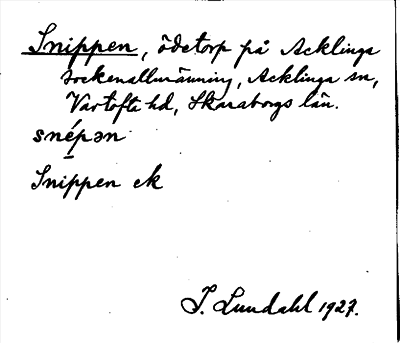 Snippen, ödetorp på Acklinga
sockenallmänning, Acklinga sn,
Vartofta hd, Skaraborgs län.
snépən
Snippen ek
I. Lundahl 1927.